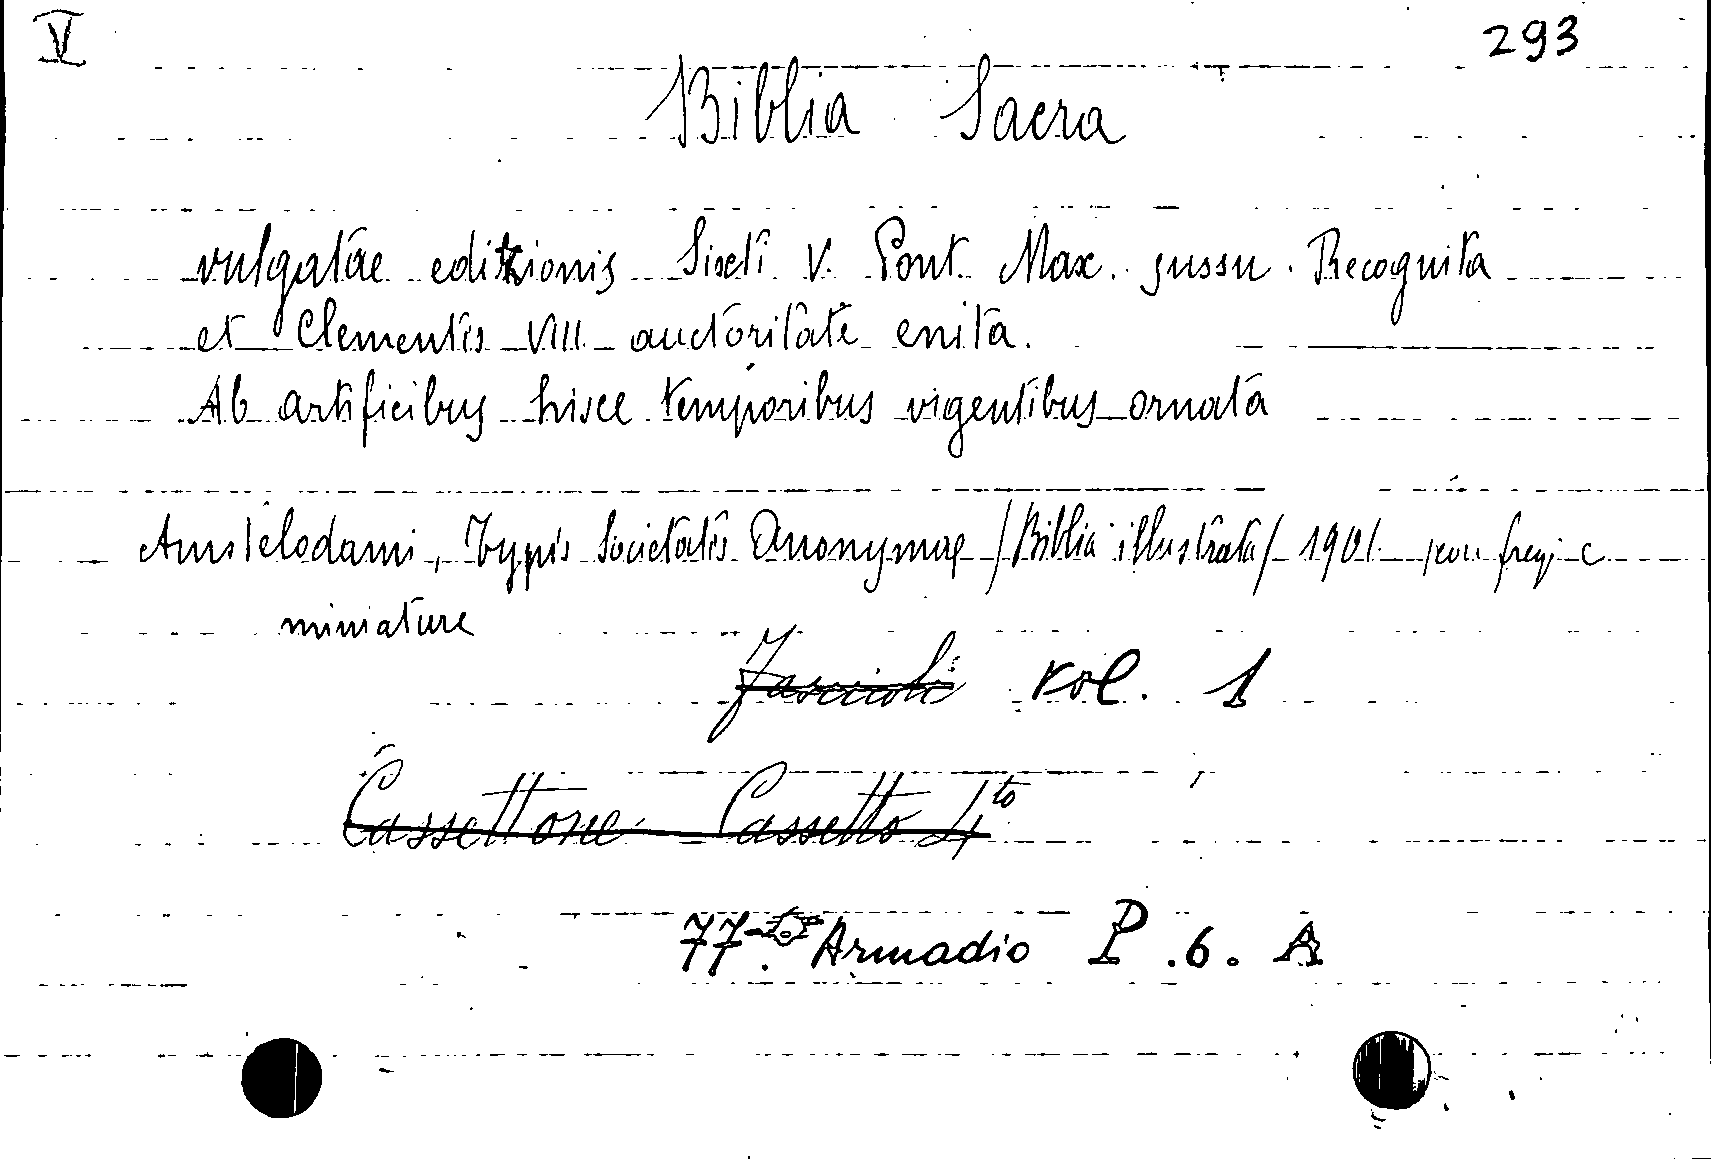 V 293
Biblia Sacra
vulgatae editionis Sixti V. Pont. Max. jussu. Recognita
et Clementis VIII auctoritate enita.
Ab artificibus hisce temporibus vigentibus ornata
Amstelodami, Typis Societatis Anonymae /Biblia illustrata/ 1901 con fregi e
miniature
Fascicoli vol. 1
Cassettone Cassetto 4to
77 Armadio P .6. A